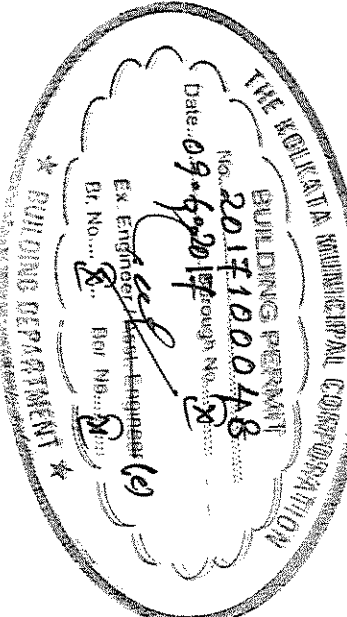 THE KOLKATA MUNICIPAL CORPORATION
BUILDING PERMIT
No. 2017100048
Date..09.6.2017 Borough No. X
Ex. Engineer (e)
Br. No. Bor No. X
★ BUILDING DEPARTMENT ★